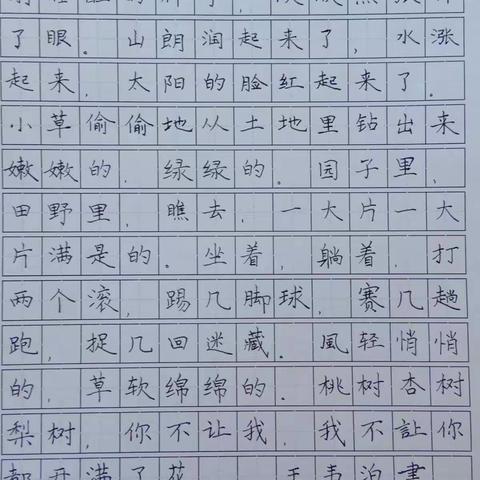 了眼。山朗润起来了，水涨
起来，太阳的脸红起来了。
小草偷偷地从土地里钻出来
嫩嫩的，绿绿的。园子里，
田野里，瞧去，一大片一大
片满是的。坐着，躺着，打
两个滚，踢几脚球，赛几趟
跑，捉几回迷藏。風轻悄悄
的，草软绵绵的。桃树杏树
梨树，你不让我，我不让你
都开满了花